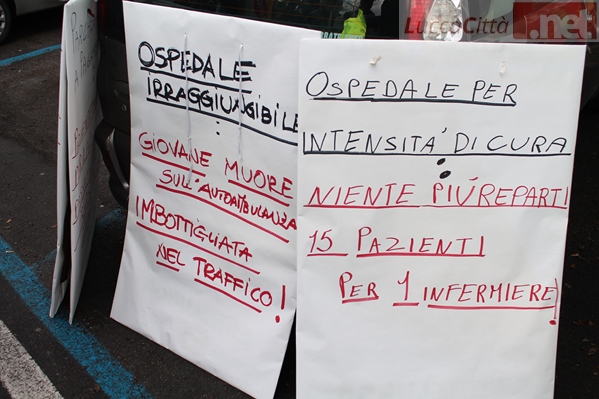 LuccaCittà.net
OSPEDALE
IRRAGGIUNGIBILE
:
GIOVANE MUORE
SULL'AUTOAMBULANZA
IMBOTTIGLIATA
NEL TRAFFICO!
OSPEDALE PER
INTENSITA' DI CURA
:
NIENTE PIÚ REPARTI
15 PAZIENTI
PER 1 INFERMIERE!